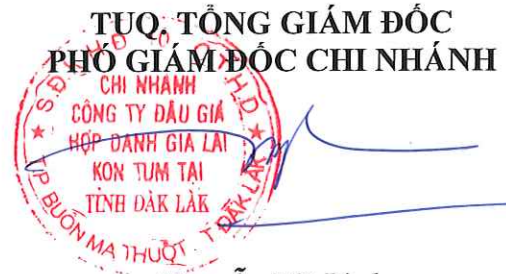 TUQ. TỔNG GIÁM ĐỐC
PHÓ GIÁM ĐỐC CHI NHÁNH
CHI NHÁNH
CÔNG TY ĐẤU GIÁ
HỢP DANH GIA LAI
KON TUM TẠI
TỈNH ĐẮK LẮK
TP. BUÔN MA THUỘT - T. ĐẮK LẮK